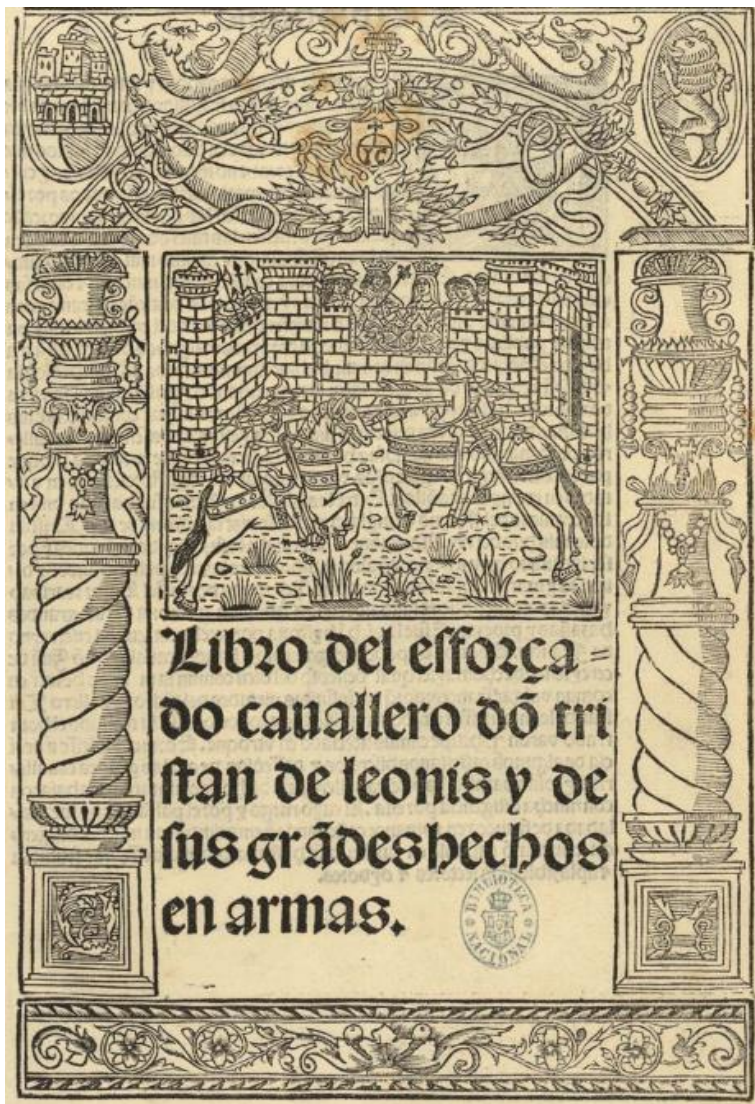 JC
Libro del efforça=
do cauallero dõ tri
ſtan de leonis y de
ſus grãdes hechos
en armas.
BIBLIOTECA
NACIONAL